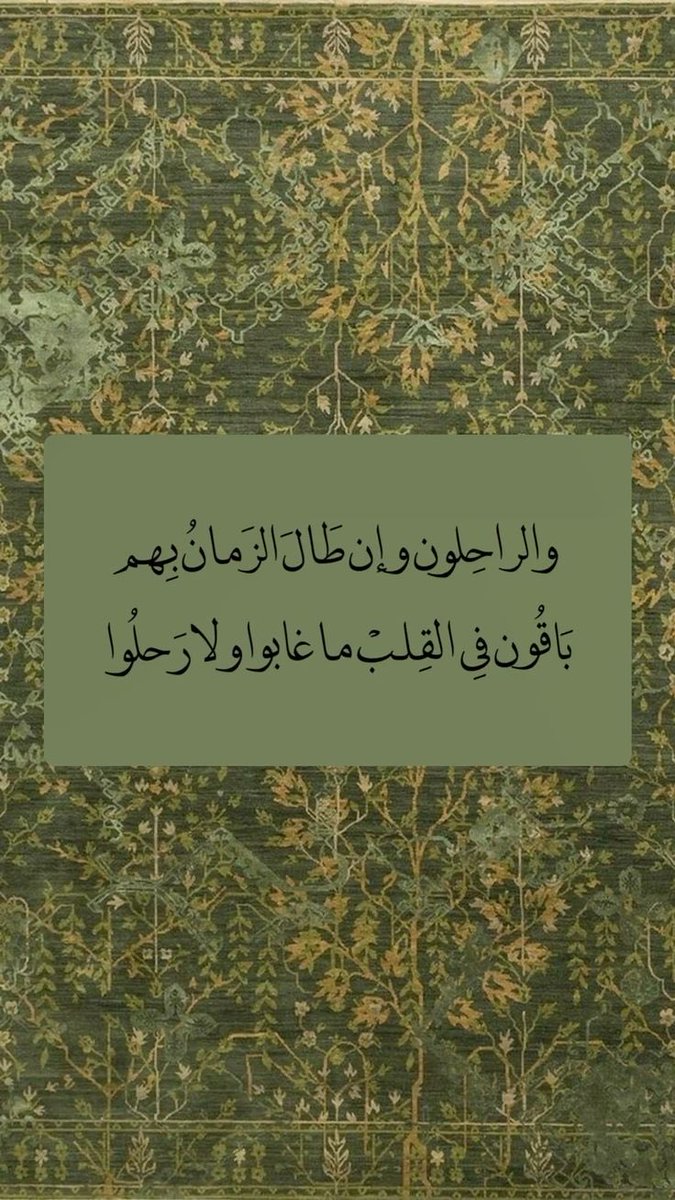 والراحِلون وإن طَالَ الزَمانُ بِهم
بَاقُون فِي القِلبْ ما غابوا ولا رَحلُوا